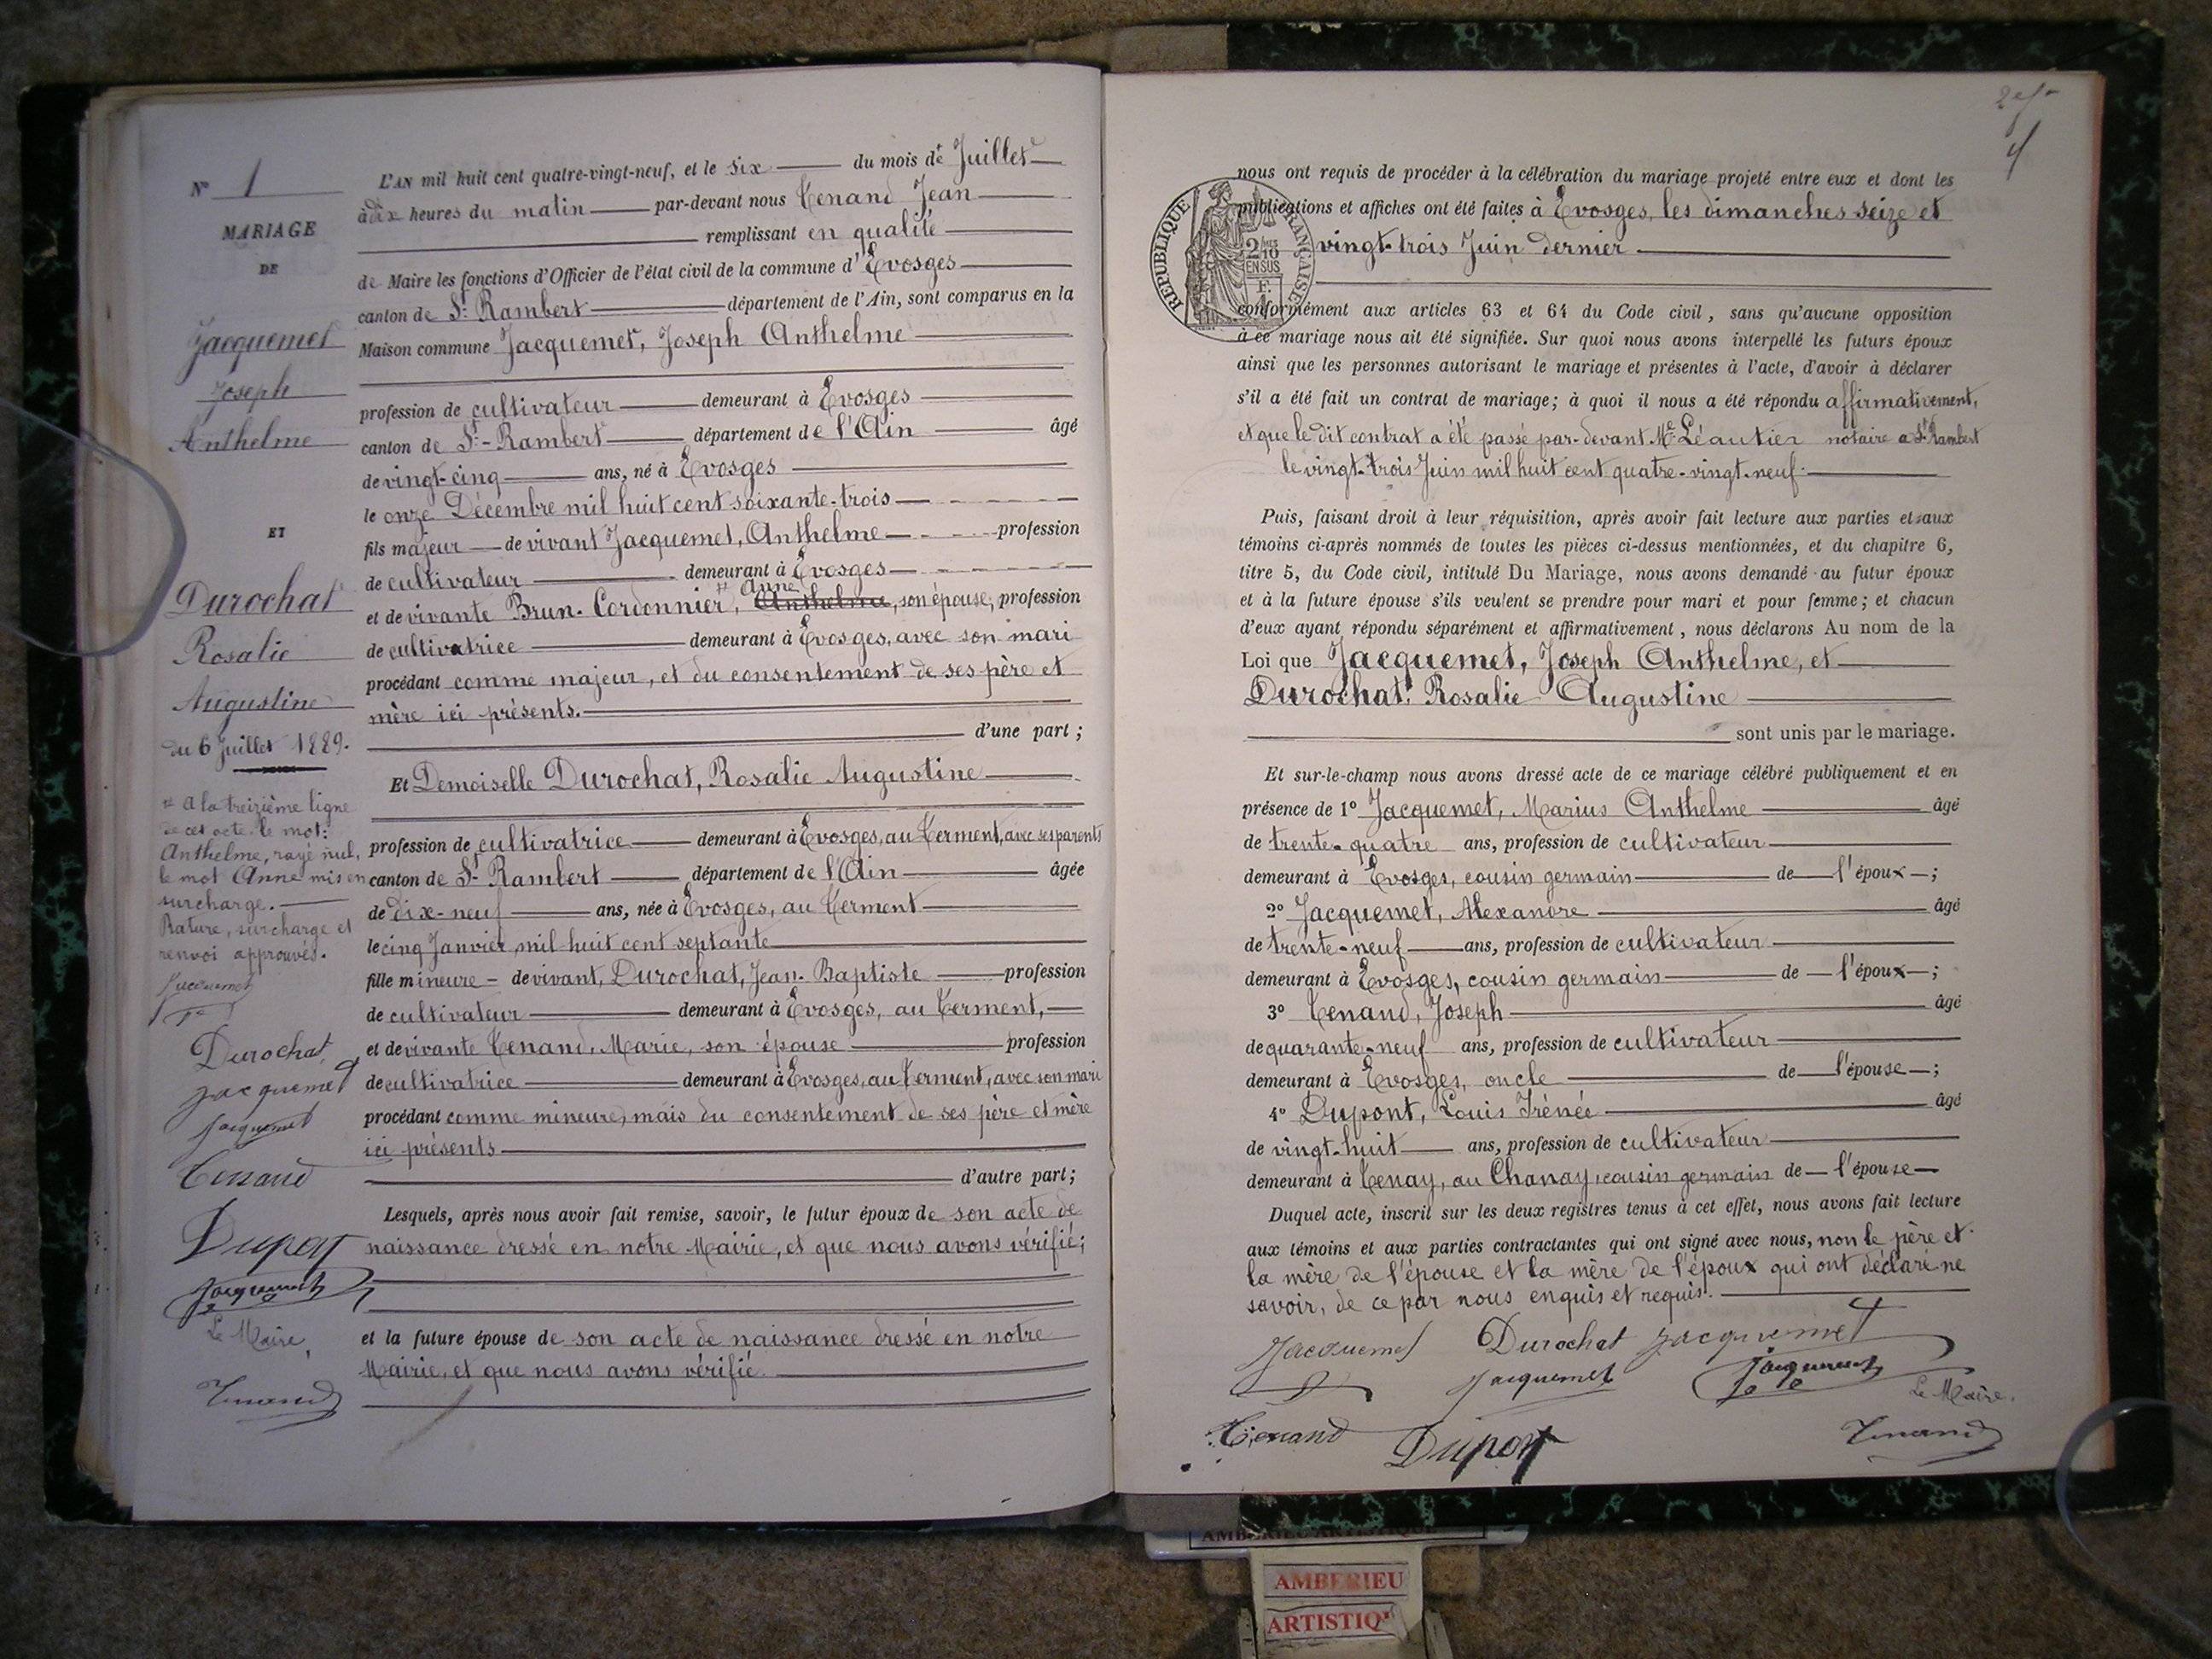 N° 1
MARIAGE
DE
Jacquemet
Joseph
Anthelme
ET
Durochat
Rosalie
Augustine
du 6 Juillet 1889.
# A la treizième ligne
de cet acte le mot:
Anthelme, rayé nul,
le mot Anne mis en
surcharge.
Rature, surcharge et
renvoi approuvés.
Jacquemet
Durochat
Jacquemet
Jacquemet
Tenand
Dupont
Jacquemet
Le Maire,
Tenand
L'AN mil huit cent quatre-vingt-neuf, et le six du mois de Juillet
à dix heures du matin par-devant nous Tenand Jean
remplissant en qualité
de Maire les fonctions d'Officier de l'état civil de la commune d'Evosges
canton de St Rambert département de l'Ain, sont comparus en la
Maison commune Jacquemet, Joseph Anthelme
profession de cultivateur demeurant à Evosges
canton de St-Rambert département de l'Ain âgé
de vingt-cinq ans, né à Evosges
le onze Décembre mil huit cent soixante-trois
fils majeur de vivant Jacquemet, Anthelme profession
de cultivateur demeurant à Evosges
et de vivante Brun-Cordonnier, # Anne Anthelme, son épouse, profession
de cultivatrice demeurant à Evosges, avec son mari
procédant comme majeur, et du consentement de ses père et
mère ici présents.
d'une part ;
Et Demoiselle Durochat, Rosalie Augustine
profession de cultivatrice demeurant à Evosges, au Terment, avec ses parents
canton de St Rambert département de l'Ain âgée
de dix-neuf ans, née à Evosges, au Terment
le cinq Janvier mil huit cent septante
fille mineure - de vivant, Durochat, Jean-Baptiste profession
de cultivateur demeurant à Evosges, au Terment,
et de vivante Tenand, Marie, son épouse profession
de cultivatrice demeurant à Evosges, au Terment, avec son mari
procédant comme mineure, mais du consentement de ses père et mère
ici présents
d'autre part ;
Lesquels, après nous avoir fait remise, savoir, le futur époux de son acte de
naissance dressé en notre Mairie, et que nous avons vérifié;
et la future épouse de son acte de naissance dressé en notre
Mairie, et que nous avons vérifié.
4
nous ont requis de procéder à la célébration du mariage projeté entre eux et dont les
publications et affiches ont été faites à Evosges, les dimanches seize et
vingt-trois Juin dernier
RÉPUBLIQUE FRANÇAISE
2/10 EN SUS
conformément aux articles 63 et 64 du Code civil, sans qu'aucune opposition
à ce mariage nous ait été signifiée. Sur quoi nous avons interpellé les futurs époux
ainsi que les personnes autorisant le mariage et présentes à l'acte, d'avoir à déclarer
s'il a été fait un contrat de mariage; à quoi il nous a été répondu affirmativement,
et que le dit contrat a été passé par-devant Me Léautier notaire à St Rambert
le vingt-trois Juin mil huit cent quatre-vingt-neuf.
Puis, faisant droit à leur réquisition, après avoir fait lecture aux parties et aux
témoins ci-après nommés de toutes les pièces ci-dessus mentionnées, et du chapitre 6,
titre 5, du Code civil, intitulé Du Mariage, nous avons demandé au futur époux
et à la future épouse s'ils veulent se prendre pour mari et pour femme; et chacun
d'eux ayant répondu séparément et affirmativement, nous déclarons Au nom de la
Loi que Jacquemet, Joseph Anthelme, et
Durochat, Rosalie Augustine
sont unis par le mariage.
Et sur-le-champ nous avons dressé acte de ce mariage célébré publiquement et en
présence de 1° Jacquemet, Marius Anthelme âgé
de trente-quatre ans, profession de cultivateur
demeurant à Evosges, cousin germain de l'époux ;
2° Jacquemet, Alexandre âgé
de trente-neuf ans, profession de cultivateur
demeurant à Evosges, cousin germain de l'époux ;
3° Tenand, Joseph âgé
de quarante-neuf ans, profession de cultivateur
demeurant à Evosges, oncle de l'épouse ;
4° Dupont, Louis Irénée âgé
de vingt-huit ans, profession de cultivateur
demeurant à Tenay, au Chanay, cousin germain de l'épouse
Duquel acte, inscrit sur les deux registres tenus à cet effet, nous avons fait lecture
aux témoins et aux parties contractantes qui ont signé avec nous, non le père et
la mère de l'épouse et la mère de l'époux qui ont déclaré ne
savoir, de ce par nous enquis et requis.
Jacquemet Durochat Jacquemet
Jacquemet Jacquemet Le Maire.
Tenand Dupont Tenand
AMBERIEU ARTISTIQUE
AMBERIEU
ARTISTIQ